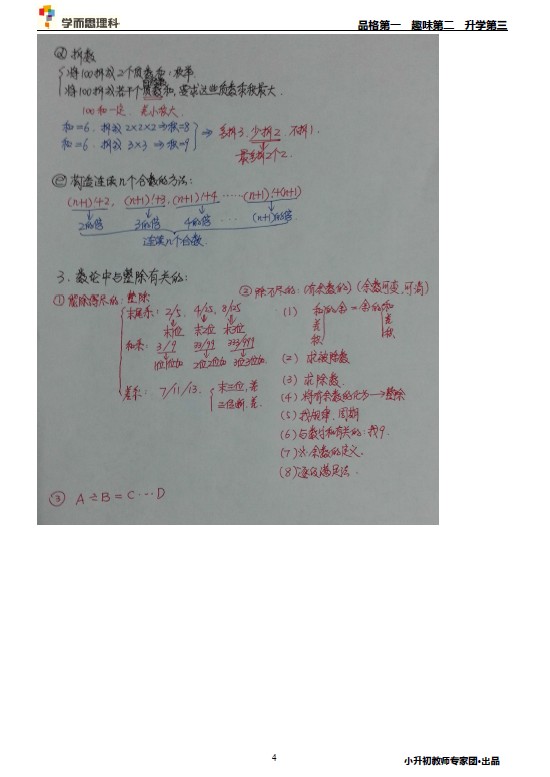 学而思理科
品格第一 趣味第二 升学第三
ⓓ 拆数
将100拆成2个质数和，枚举
将100拆成若干个质数和，要求这些质数乘积最大．
100和一定，差小积大．
和=6．拆成 2×2×2⇒积=8
和=6．拆成 3×3⇒积=9
⇒ 多拆3．少拆2．不拆1．
最多拆2个2．
ⓔ 构造连续n个合数的方法：
(n+1)!+2，(n+1)!+3，(n+1)!+4 ……(n+1)!+(n+1)
2的倍 3的倍 4的倍 … (n+1)的倍
连续n个合数．
3．数论中与整除有关的：
① 整除得尽的：整除
末尾系：2/5． 4/25．8/125
末1位 末2位 末3位
和系：3/9 33/99 333/999
1位1位加 2位2位加 3位3位加．
差系：7/11/13．
末三位，差
三位断．差．
② 除不尽的：(有余数的)(余数可变，可消)
(1) 和的余＝余的和
差 差
积 积
(2) 求被除数
(3) 求除数．
(4) 将有余数的化为→整除
(5) 找规律．周期
(6) 与数字和有关的：找9．
(7) 余数的定义．
(8) 逐级满足法．
③ A÷B＝C…D
4
小升初教师专家团•出品